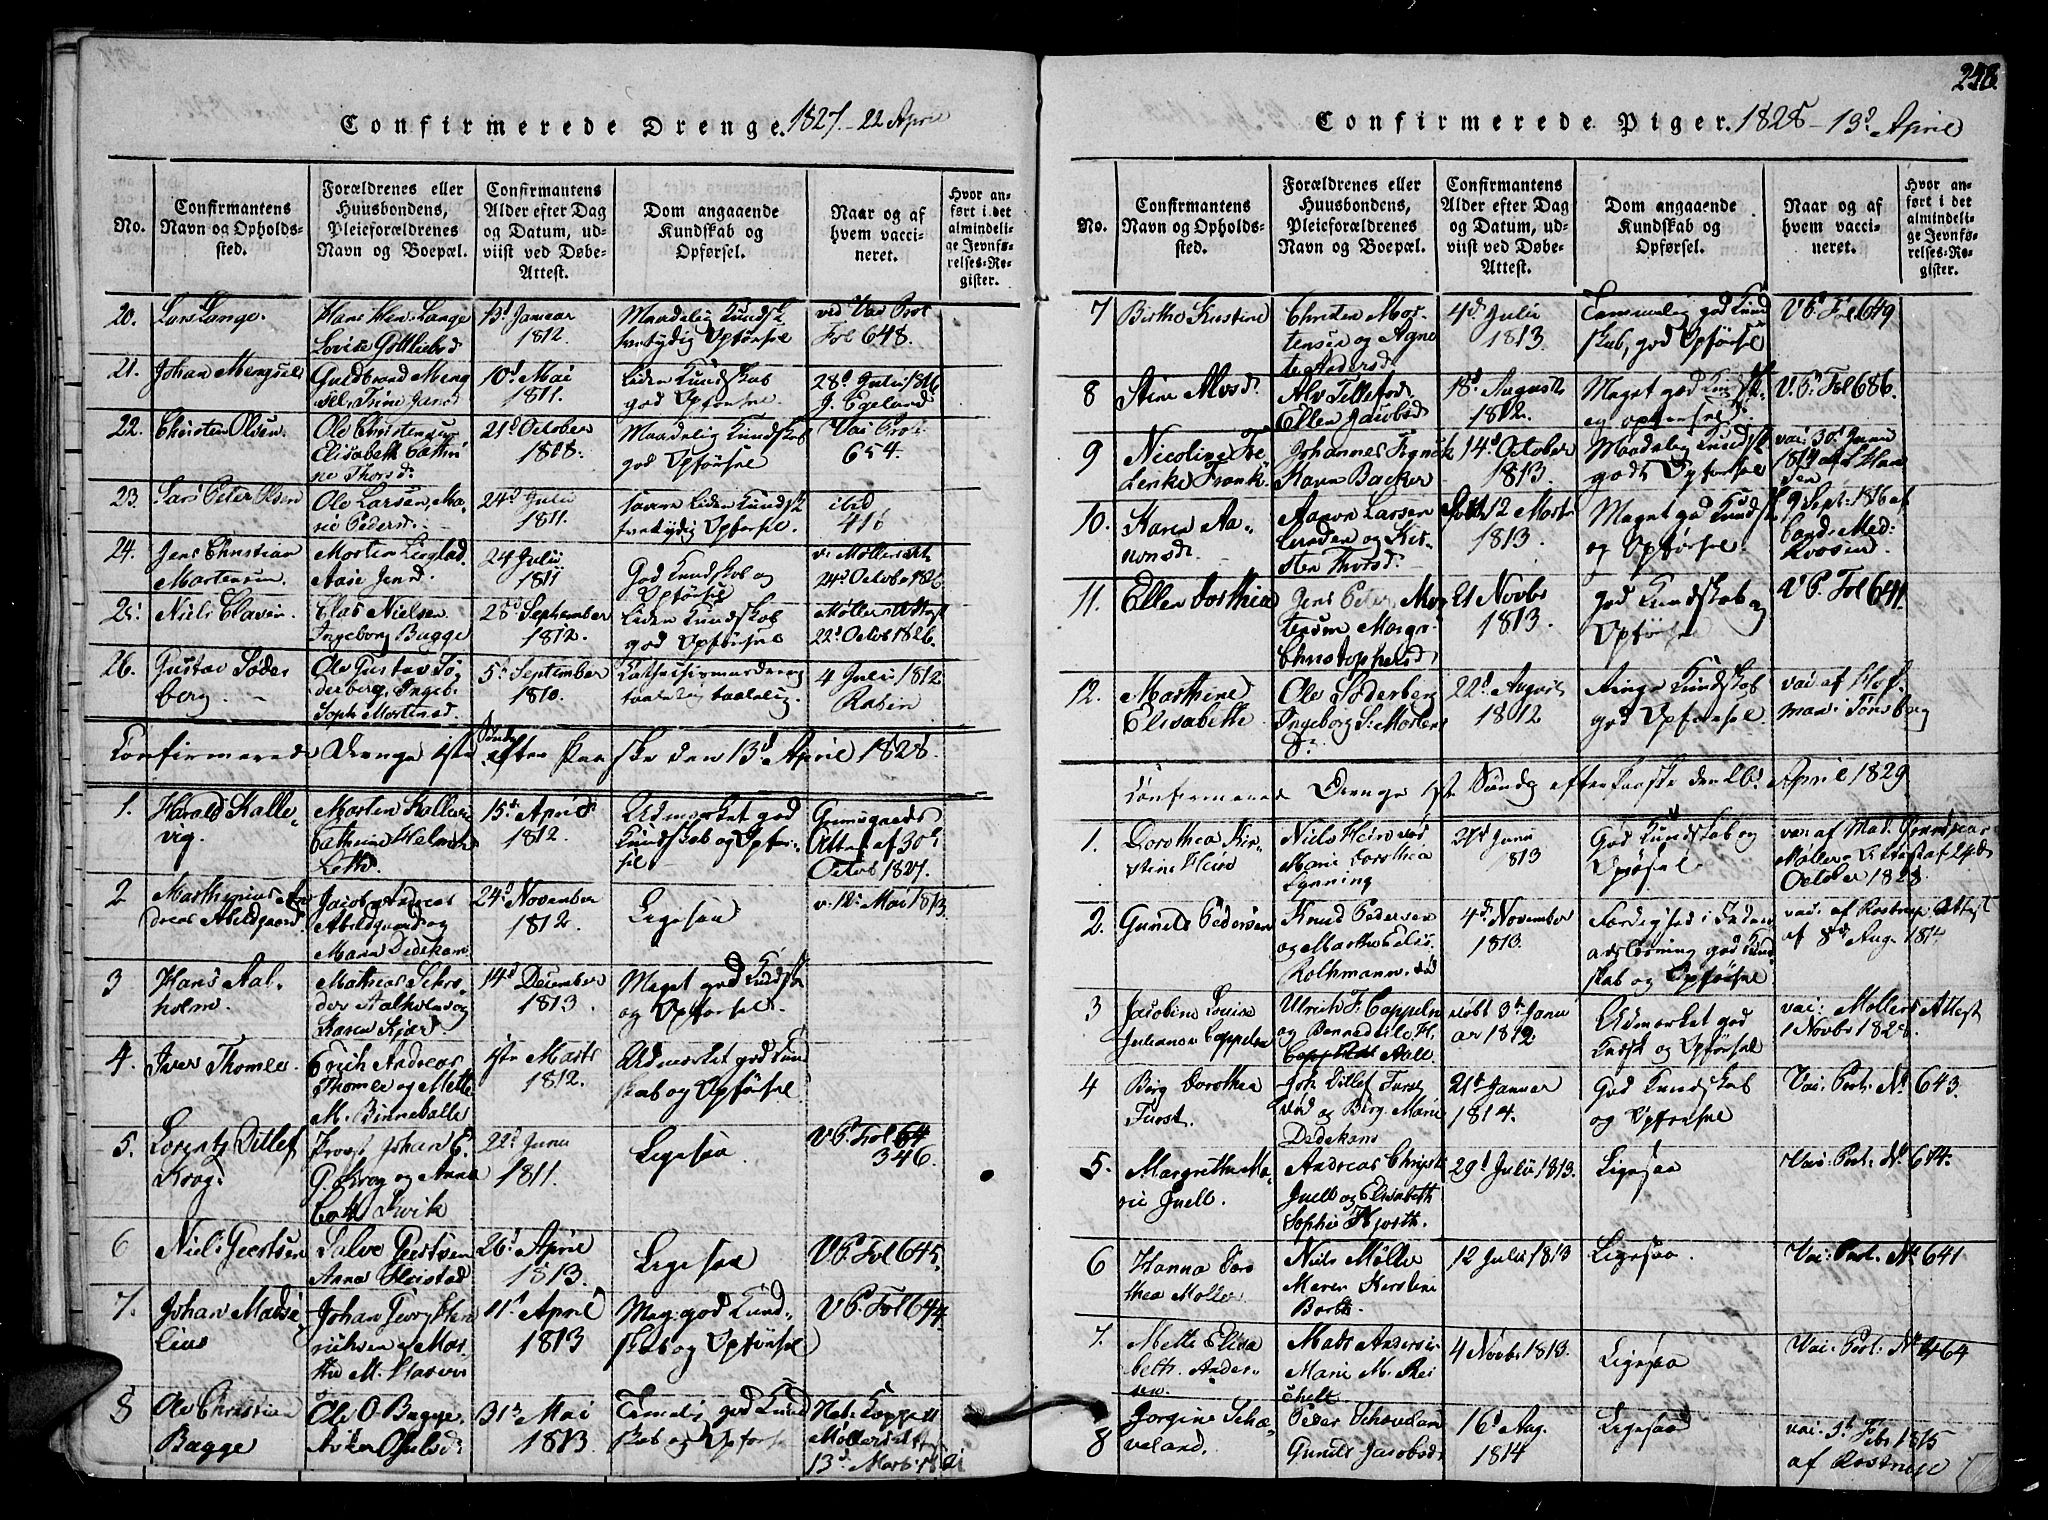 Confirmerede Drenge. 1827. - 22 April
No.
Confirmantens Navn og Opholds-sted.
Forældrenes eller Huusbondens, Pleieforældrenes Navn og Boepæl.
Confirmantens Alder efter Dag og Datum, ud-viist ved Døbe-Attest.
Dom angaaende Kundskab og Opførsel.
Naar og af hvem vacci-neret.
Hvor an-ført i det almindeli-ge Jevnfø-relses-Re-gister.
20. Lars Lange.
Hans Hen: Lange
Lovise Gottliebsd
13d Januar
1812.
Maadelig Kundsk
Opførsel
ved Vac Prot
Fol 648.
21. Johan Mengsel
Guldbrand Meng
sel, Trine Jansd
10d Mai
1811.
Liden Kundskab
god Opførsel
28d Julii 1816
J. Egeland
22. Christen Olsen.
Ole Christensen
Elisabeth Cathri
ne Thorsd.
21d October
1808.
Maadelig Kundskab
god Opførsel
Vac Prot:
654.
23. Lars Peter Olsen
Ole Larsen, Ma-
rie Pedersd.
24d Julii
1811.
Liden Kundsk
Opførsel.
ibid
416
24. Jens Christian
Mortensen.
Morten
Aase Jensd.
24 Julii
1811
God Kundskab og
Opførsel
v: Møllers Att
24d Octobr 1826
25. Niels Claven
Clas Nielsen
Ingeborg Bugge
28d September
1812.
Liden Kundskab
god Opførsel
Møllers Attest
22d Octobr 1826.
26. Gustav Søder
berg.
Ole Gustav Sø
derberg, Ingeb:
Soph: Mortensd.
5t September
1810.
taalelig
4 Julii 1812
Raben
Confirmerede Drenge 1ste Søndag efter Paa ske den 13d April 1828.
1. Harald Kalle-
vig.
Morten Kallevig
Cathrine Helmich
Leth.
15d April
1812.
Udmærket god
Kundskab og Opfør-
sel
Attest af 30d
Octob 1827.
2 Marthinius An
dreas Abildgaard
Jacob Andreas
Abildgaard og
Maren Dedekam
24d November
1812.
Ligesaa
v: 12: Mai 1813.
3 Hans Aal-
holm.
Mathias Schrø-
der Aalholm og
Karen Kjær.
14d December
1813.
Meget god Kundsk
og Opførsel.
4. Iver Thomle.
Erich Andreas
Thomle og Mette
M. Binneballe
1ste Marts
1812.
Udmærket god Kund
skab og Opførsel
5. Lorentz Ditlef
Krog.
Provst Johan E.
G. Krog og Anna
Cath Qwik
22d Junii
1811.
Ligesaa
V P. Fol 64
346.
6 Niels Geertsen
Salve Geertsen
Anna Fleistad
26d April
1813.
Ligesaa
V P. Fol 645.
7. Johan Mathi
lius
Johan Georg Hen
richsen og Mar-
the M.
11d April
1813
Meg: god Kund-
skab og Opførsel
V P. Fol 644.
8 Ole Christian
Bagge
Ole O Bagge,
31d Mai
1813.
Temelig god Kund
skab og Opførsel
Møllers Att
13d Marts
248.
Confirmerede Piger. 1828 - 13d April
No.
Confirmantens Navn og Opholds-sted.
Forældrenes eller Huusbondens, Pleieforældrenes Navn og Boepæl.
Confirmantens Alder efter Dag og Datum, ud-viist ved Døbe-Attest.
Dom angaaende Kundskab og Opførsel.
Naar og af hvem vacci-neret.
Hvor an-ført i det almindeli-ge Jevnfø-relses-Re-gister.
7 Birthe Kirstine
Christen Mor
tensen og Agne
te Andersd
4d Julii
1813.
Temmelig god Kund
skab, god Opførsel
V P. Fol 649
8 Stine Alvsd.
Alv Tellefsd.
Ellen Jacobsd
18d Augusti
1812.
Meget god Kundsk.
og opførsel
V. P. Fol 686.
9 Nicoline Fre
derike Frank
Johannes Frank
Karen Backer
14d October
1813.
Maadelig Kundsk
gode Opførsel
vac: 30d Junii
10. Karen Aa-
nonsd.
Aanon Larsen
og Kir-
sten Thorsd.
født 12 Marts
1813.
Meget god Kundsk.
og Opførsel.
9 Sept: 1816 af
Cand: Med:
11. Ellen Dorthea
Jens Peter Mor
tensen Margr:
Christophersd
21 Novbr
1813.
god Kundskab og
Opførsel
V P. Fol 641.
12. Marthine
Elisabethe
Ole Søderberg
Ingeborg S: Mortens
D.
22d August
1812
Ringe Kundskab
god Opførsel
vac: af Hof-
man: Tønsberg
Confirmerede Drenge 1ste Søndg efter Paaske den 26d April 1829
1. Dorothea Kir-
stine Heird
Niels Heird
Marie Dorothea
Lynning
27d Junii
1813
God Kundskab og
Opførsel
vac: af Mad:
Møllers Attest af
October 1828
2. Gunild Pedersen
Knud Pedersen
og Marthe Elis:
Rothmann.
4d November
1813.
Færdighed i
god Kund
skab og Opførsel
vac: af Rostrup Attest
af 8d Aug. 1814
3 Jacobine Louise
Juliane Cappelen
Ulrich F. Cappelen
og Benedicte H.
Aall
født 3d Janu
ar 1812
Udmærket god
Kndsk og Opførsel
vac: Møllers Attest
1 Novbr 1828.
4 Berg: Dorothea
Furst.
Joh: Ditlef Furst
og Berg: Marie
Dedekam
21d Januar
1814.
God Kundskab
og Opførsel
Vac: Prot: No 643.
5. Margrethe Ma-
rie Juell.
Andreas Christ:
Juell og Elisabeth
Sophie Hjorth.
29d Julii 1813.
Ligesaa
Vac: Prot: No 674.
6 Hanna Doro
thea Møller
Niels Møller
Maren Kirstine
Bork.
12 Julii 1813
Ligesaa.
Vac: Prot. No 641
7. Mette Elisa
beth. Ander-
sen.
Mads Andersen
Marie M. Rei
chelt
4 Novbr 1813.
Ligesaa
Vac: Prot: No 464
8 Jorgine Schæ-
veland.
Peder Schæveland
Gunild Jacobsd
16d Aug.
1814
Ligesaa
vac: 3d Febr 1815
af Rostrup